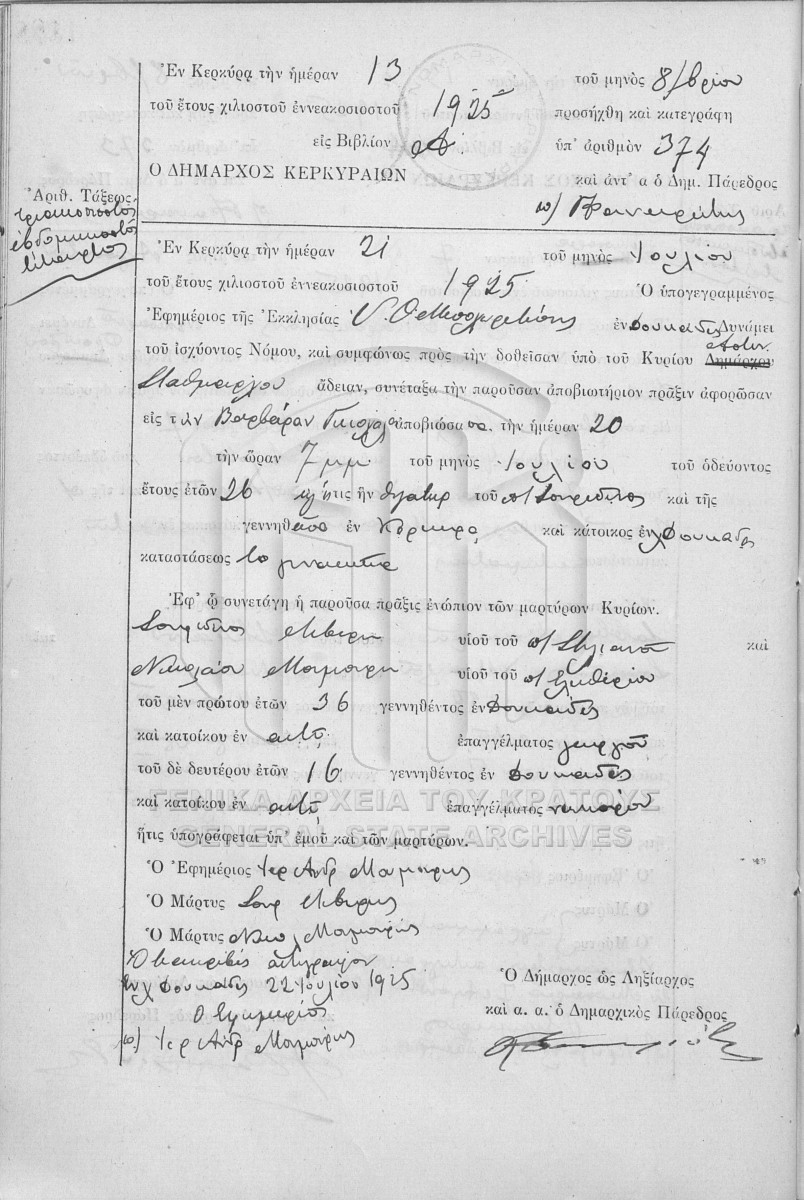 Ἐν Κερκύρᾳ τὴν ἡμέραν 13 τοῦ μηνὸς 8/βρίου
τοῦ ἔτους χιλιοστοῦ ἐννεακοσιοστοῦ 1925 προσήχθη καὶ κατεγράφη
εἰς Βιβλίον ὑπ' ἀριθμὸν 374
Ο ΔΗΜΑΡΧΟΣ ΚΕΡΚΥΡΑΙΩΝ καὶ ἀντ' α ὁ Δημ. Πάρεδρος
Ἀριθ. Τάξεως
τριακοσιοστὸς
ἑβδομηκοστὸς
τέταρτος
Ἐν Κερκύρᾳ τὴν ἡμέραν 21 τοῦ μηνὸς Ἰουλίου
τοῦ ἔτους χιλιοστοῦ ἐννεακοσιοστοῦ 1925 Ὁ ὑπογεγραμμένος
Ἐφημέριος τῆς Ἐκκλησίας ἐν Δουκάδες Δυνάμει
τοῦ ἰσχύοντος Νόμου, καὶ συμφώνως πρὸς τὴν δοθεῖσαν ὑπὸ τοῦ Κυρίου Ἀστυν. Δημάρχου
Σταθμάρχου ἄδειαν, συνέταξα τὴν παροῦσαν ἀποβιωτήριον πρᾶξιν ἀφορῶσαν
εἰς τὴν Βαρβάραν ἀποβιώσασα. τὴν ἡμέραν 20
τὴν ὥραν 7 μμ τοῦ μηνὸς Ἰουλίου τοῦ ὁδεύοντος
ἔτους ἐτῶν 26 ἥτις ἦν θυγάτηρ τοῦ π/ Σπυρίδωνος καὶ τῆς
γεννηθεῖσα ἐν Κέρκυρα καὶ κάτοικος ἐν Δουκάδες
καταστάσεως
Ἐφ' ᾧ συνετάγη ἡ παροῦσα πρᾶξις ἐνώπιον τῶν μαρτύρων Κυρίων.
Σπυρίδωνος υἱοῦ τοῦ π/ Στυλιανοῦ καὶ
Νικολάου Μουμούρη υἱοῦ τοῦ π/ Ἐλευθερίου
τοῦ μὲν πρώτου ἐτῶν 36 γεννηθέντος ἐν Δουκάδες
καὶ κατοίκου ἐν αὐτῷ ἐπαγγέλματος γεωργοῦ
τοῦ δὲ δευτέρου ἐτῶν 16 γεννηθέντος ἐν Δουκάδες
καὶ κατοίκου ἐν αὐτῷ ἐπαγγέλματος νεωκόρου
ΓΕΝΙΚΑ ΑΡΧΕΙΑ ΤΟΥ ΚΡΑΤΟΥΣ
GENERAL STATE ARCHIVES
ἥτις ὑπογράφεται ὑπ' ἐμοῦ καὶ τῶν μαρτύρων.
Ὁ Ἐφημέριος Ἱερ Ἀνδρ Μουμούρης
Ὁ Μάρτυς Σπυρ
Ὁ Μάρτυς Νικολ Μουμούρης
ἀκριβὲς ἀντίγραφον
Ἐν Δουκάδες 22 Ἰουλίου 1925
Ὁ Ἐφημέριος
Ἱερ Ἀνδρ Μουμούρης
Ὁ Δήμαρχος ὡς Ληξίαρχος
καὶ α. α. ὁ Δημαρχικὸς Πάρεδρος